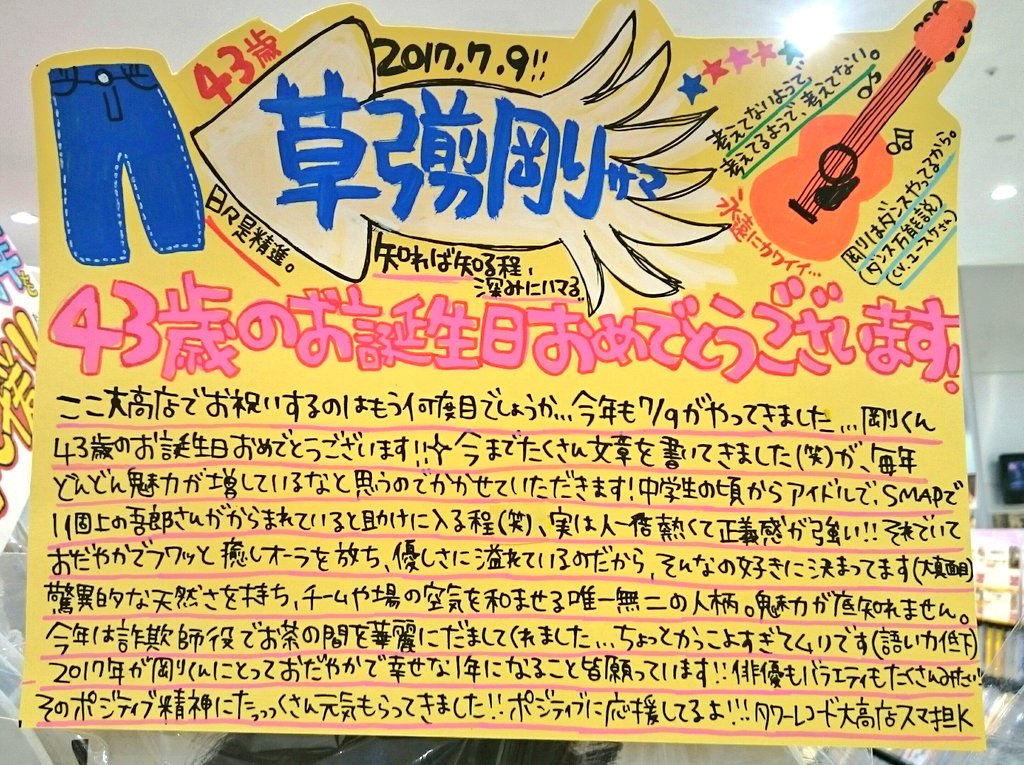 43歳
2017.7.9!!
草彅剛サマ
考えてないようで、
考えてるようで、考えてない。
日々是精進。
知れば知る程、
深みにハマる
永遠にカワイイ…
剛はダンスやってるから。
ダンス万能説
(cv.ユースケさん)
43歳のお誕生日おめでとうございます!
ここ大高店でお祝いするのはもう何度目でしょうか…今年も7/9がやってきました…剛くん
43歳のお誕生日おめでとうございます!!☆今までたくさん文章を書いてきました(笑)が、毎年
どんどん魅力が増しているなと思うのでかかせていただきます!中学生の頃からアイドルで、SMAPで
1個上の吾郎さんがからまれていると助けに入る程(笑)、実は人一倍熱くて正義感が強い!!それでいて
おだやかでフワッと癒しオーラを放ち、優しさに溢れているのだから、そんなの好きに決まってます(大真面目)
驚異的な天然さを持ち、チームや場の空気を和ませる唯一無二の人柄。魅力が底知れません。
今年は詐欺師役でお茶の間を華麗にだましてくれました…ちょっとかっこよすぎてムリです(語い力低下)
2017年が剛くんにとっておだやかで幸せな1年になること皆願っています!!俳優もバラエティもたくさんみたい!!
そのポジティブ精神にたっっくさん元気もらってきました!!ポジティブに応援してるよ!!!タワーレコード大高店スマ担K